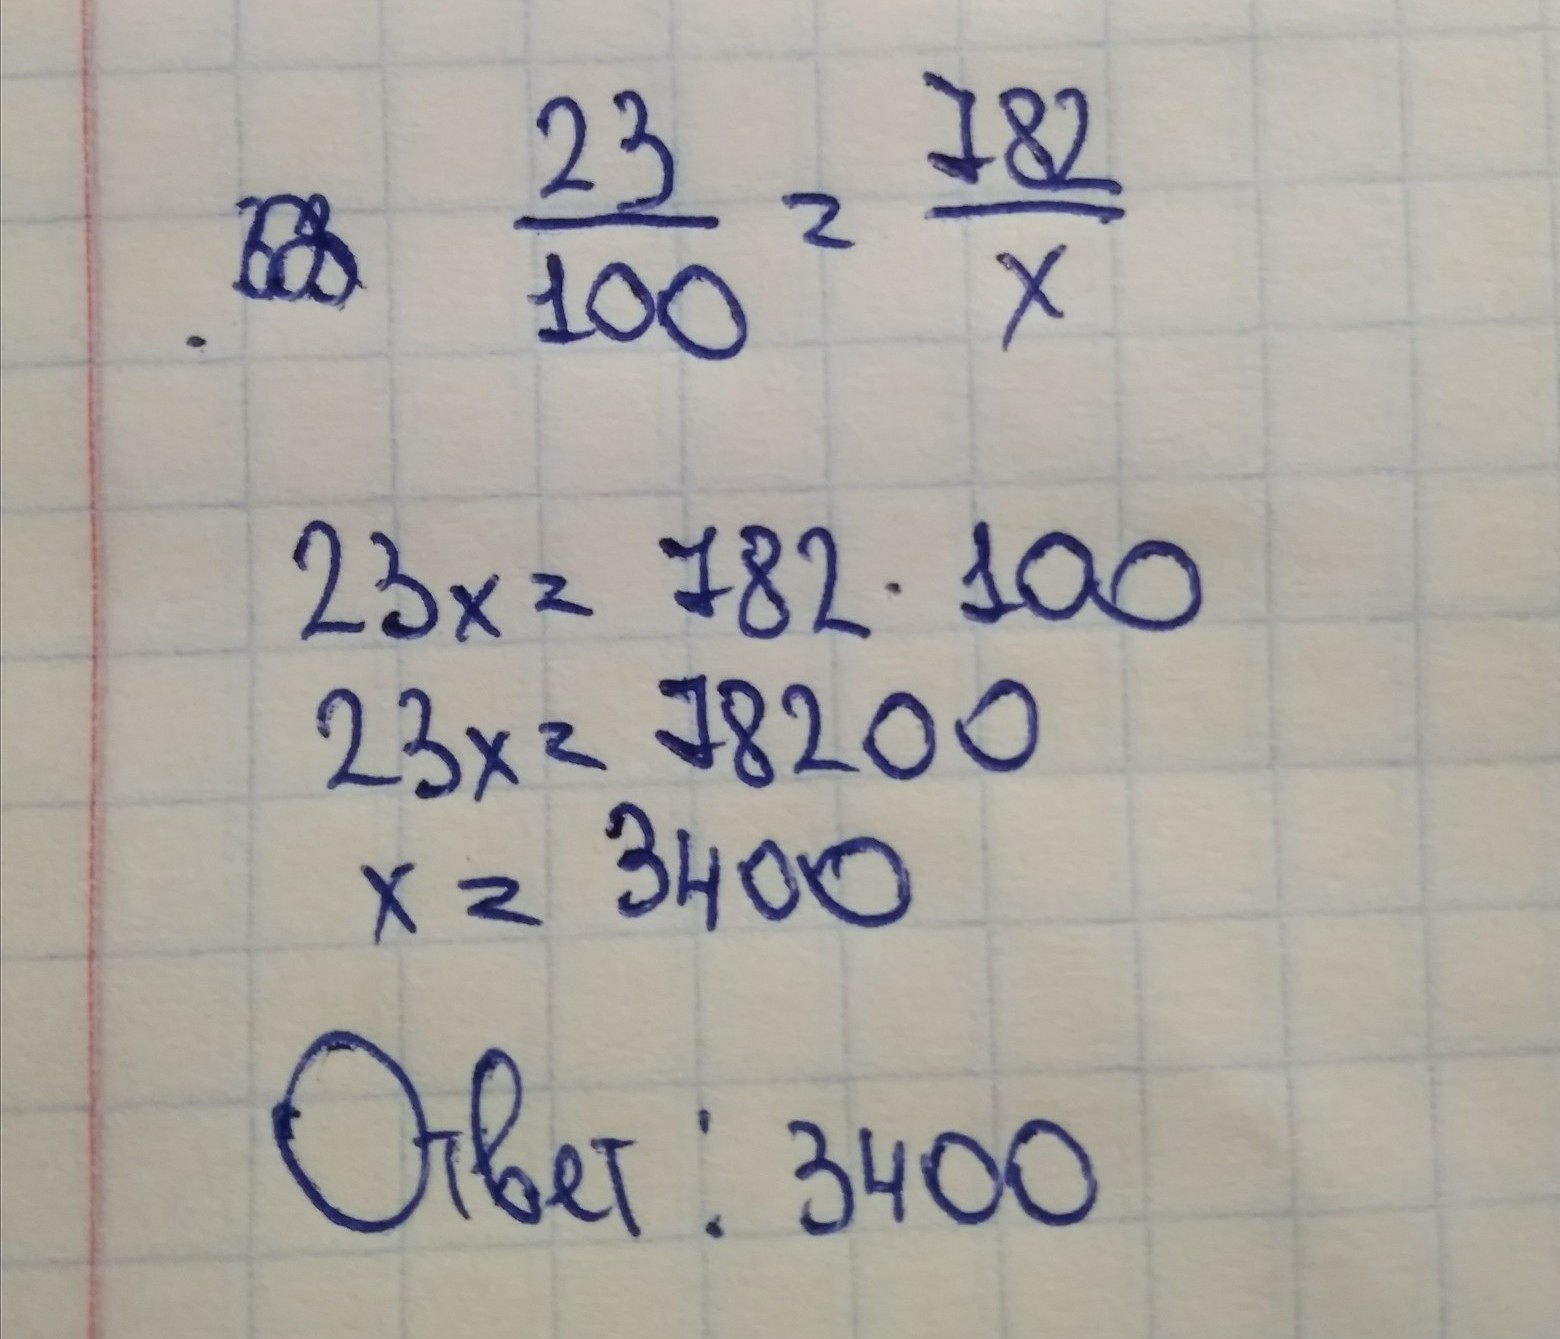 23/100 = 782/x
23x = 782 · 100
23x = 78200
x = 3400
Ответ: 3400